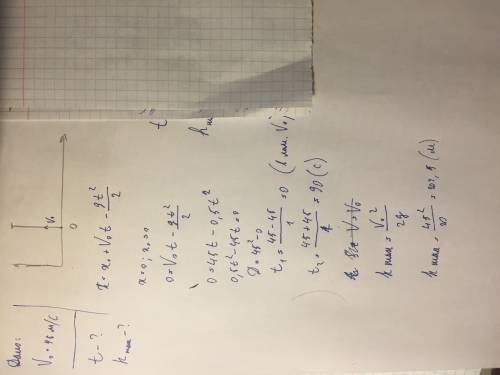 Дано:
V₀ = 45 м/с
t - ?
h max - ?
V₀
0
x = x₀ + V₀t - gt²/2
x=0; x₀=0
0 = V₀t - gt²/2
0 = 45t - 0,5t²
0,5t² - 45t = 0
D = 45² - 0
t₁ = (45 - 45)/1 = 0 (в нач. V₀)
t₂ = (45 + 45)/1 = 90 (с)
h max = V₀²/2g
h max = 45²/20 = 101,5 (м)
t